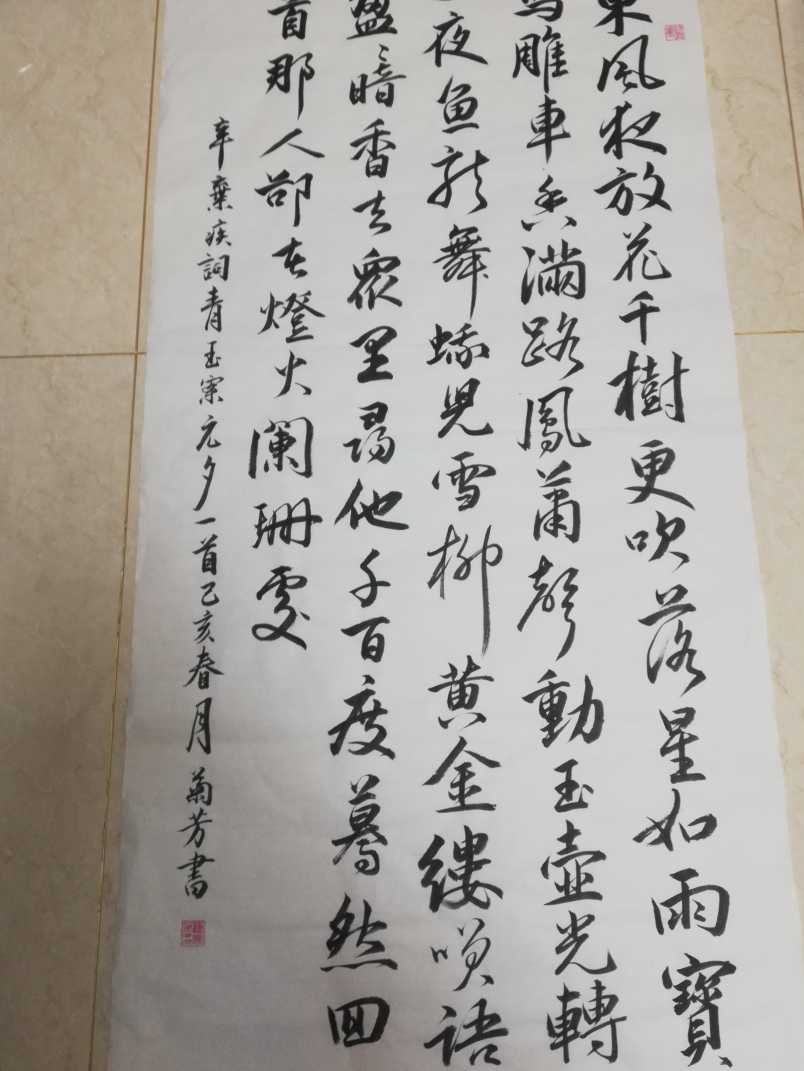 東風夜放花千樹更吹落星如雨寶
馬雕車香滿路鳳蕭聲動玉壺光轉
一夜魚龍舞蛾兒雪柳黄金縷唤語
盈〻暗香去眾里尋他千百度驀然回
首那人卻在燈火闌珊處
辛棄疾詞青玉案元夕一首己亥春月菊芳書